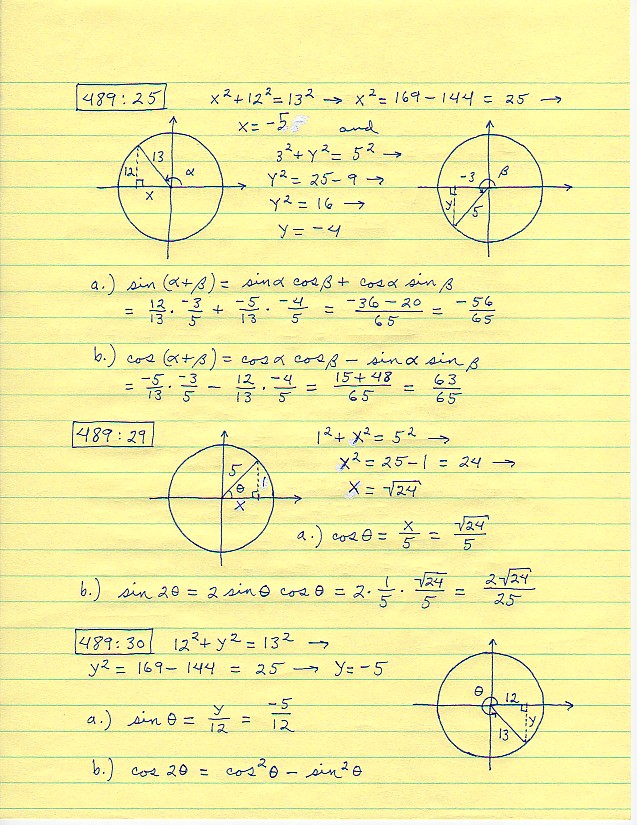 489:25 x² + 12² = 13² → x² = 169 - 144 = 25 →
x = -5 and
3² + y² = 5² →
y² = 25 - 9 →
y² = 16 →
y = -4
12 13 α x
-3 β y 5
a.) sin (α+β) = sinα cosβ + cosα sinβ
= 12/13 · -3/5 + -5/13 · -4/5 = -36-20/65 = -56/65
b.) cos (α+β) = cosα cosβ - sinα sinβ
= -5/13 · -3/5 - 12/13 · -4/5 = 15+48/65 = 63/65
489:29 1² + x² = 5² →
x² = 25 - 1 = 24 →
x = √24
5 θ 1 x
a.) cosθ = x/5 = √24/5
b.) sin 2θ = 2 sinθ cosθ = 2 · 1/5 · √24/5 = 2√24/25
489:30 12² + y² = 13² →
y² = 169 - 144 = 25 → y = -5
θ 12 y 13
a.) sinθ = y/12 = -5/12
b.) cos 2θ = cos²θ - sin²θ